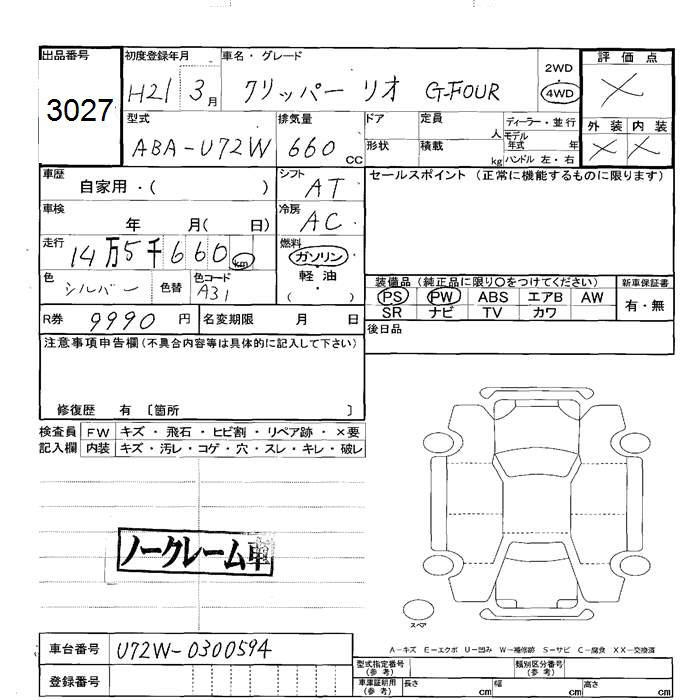 出品番号 初度登録年月 車名・グレード 評価点
3027 H21 3月 クリッパー リオ G-FOUR 2WD 4WD ×
型式 排気量 ドア 定員 人 ディーラー・並行 外装 内装
ABA-U72W 660 cc 形状 積載 kg モデル年式 年 ハンドル 左・右 × ×
車歴 自家用・( ) シフト AT セールスポイント (正常に機能するものに限ります)
車検 年 月( 日) 冷房 AC
走行 14万5千660 km 燃料 ガソリン・軽油
( )
色 シルバー 色替 色コード A31
装備品 (純正品に限り○をつけてください) 新車保証書
PS PW ABS エアB AW 有・無
SR ナビ TV カワ
R券 9990円 名変期限 月 日 後日品
注意事項申告欄(不具合内容等は具体的に記入して下さい)
修復歴 有 〔箇所 〕
検査員 FW キズ・飛石・ヒビ割・リペア跡・×要
記入欄 内装 キズ・汚レ・コゲ・穴・スレ・キレ・破レ
ノークレーム車
スペア
A-キズ E-エクボ U-凹み W-補修跡 S-サビ C-腐食 XX-交換済
車台番号 U72W-0300594
登録番号
型式指定番号(参考) 類別区分番号(参考)
車庫証明用(参考) 長さ cm 幅 cm 高さ cm